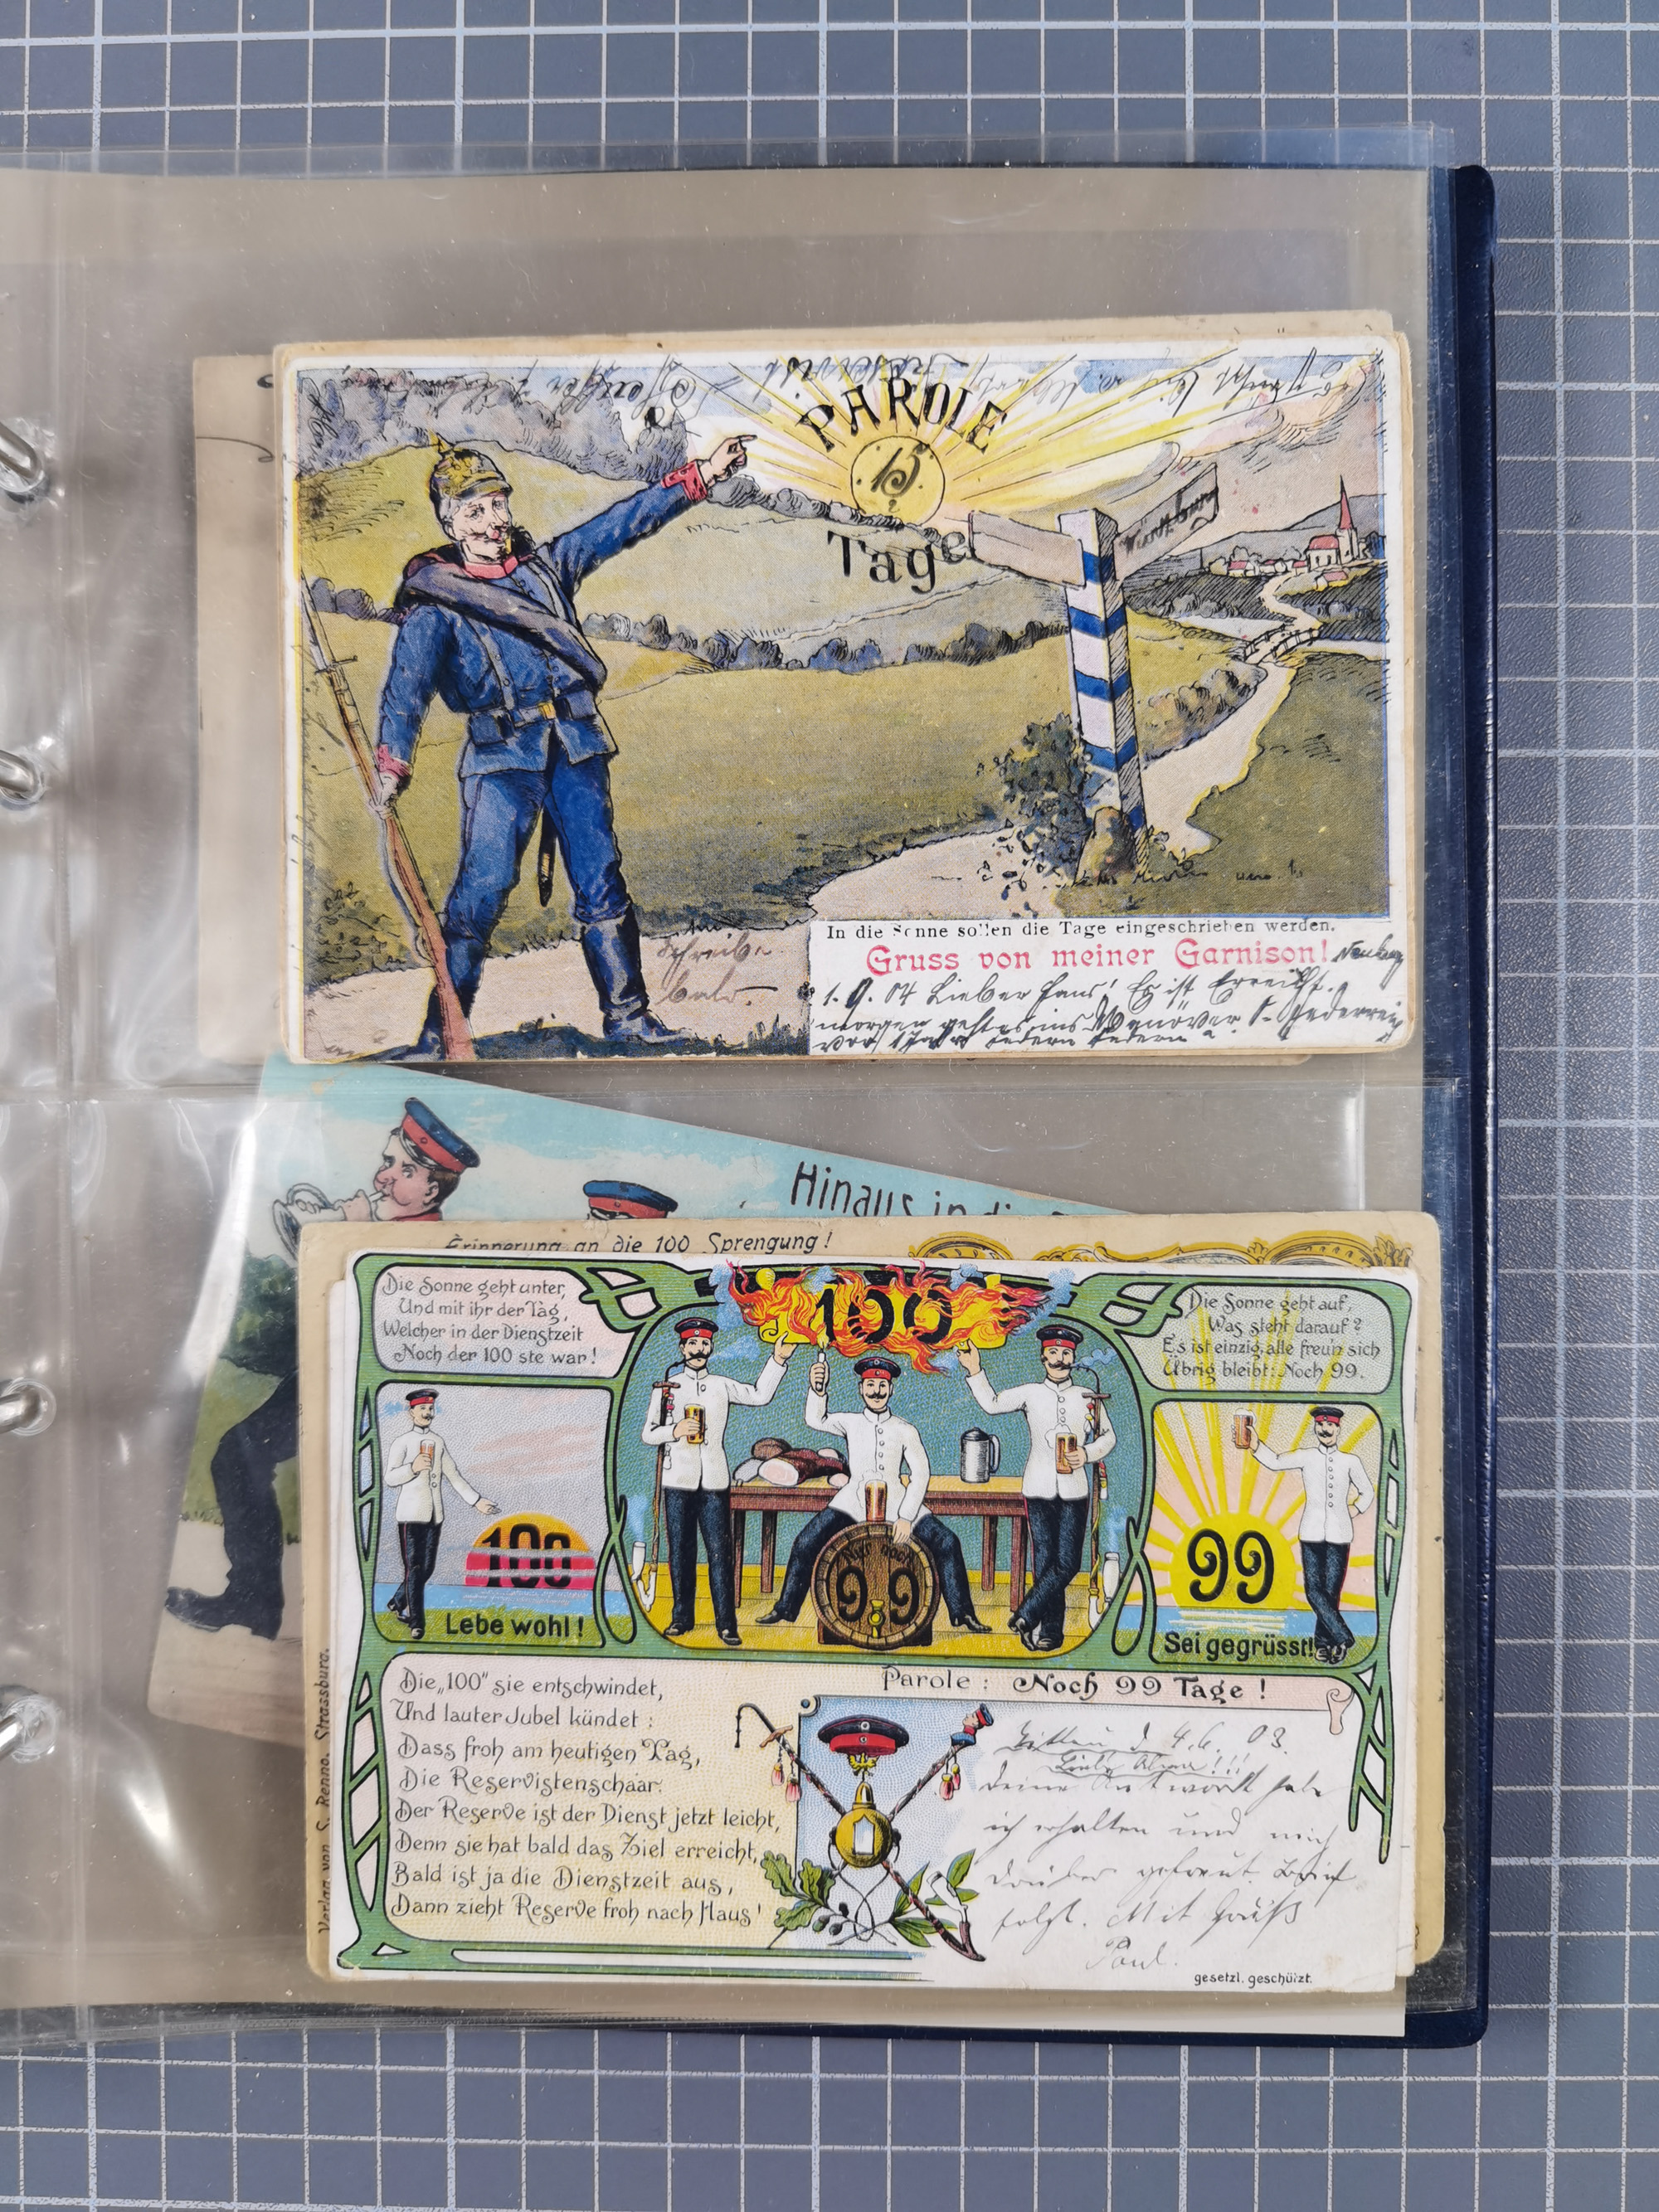 PAROLE
15
Tage!
Würzburg
Schreibe
bald.
In die Sonne sollen die Tage eingeschrieben werden.
Gruss von meiner Garnison!
1. 9. 04 Lieber Hans! Es ist Erreicht.
morgen geht es ins Manöver.
vor
Hinaus in die
Erinnerung an die 100 Sprengung!
Die Sonne geht unter,
Und mit ihr der Tag,
Welcher in der Dienstzeit
Noch der 100 ste war!
100
Die Sonne geht auf,
Was steht darauf?
Es ist einzig, alle freu'n sich
Übrig bleibt: Noch 99.
100
Lebe wohl!
Nur noch
99
99
Sei gegrüsst!
Parole: Noch 99 Tage!
Die „100" sie entschwindet,
Und lauter Jubel kündet:
Dass froh am heutigen Tag,
Die Reservistenschaar.
Der Reserve ist der Dienst jetzt leicht,
Denn sie hat bald das Ziel erreicht,
Bald ist ja die Dienstzeit aus,
Dann zieht Reserve froh nach Haus!
d 4.6. 03.
deine Antwort habe
ich erhalten und mich
drüber gefreut. Brief
folgt. Mit Gruß
Paul.
gesetzl. geschützt.
Verlag von S. Renno. Strassburg.